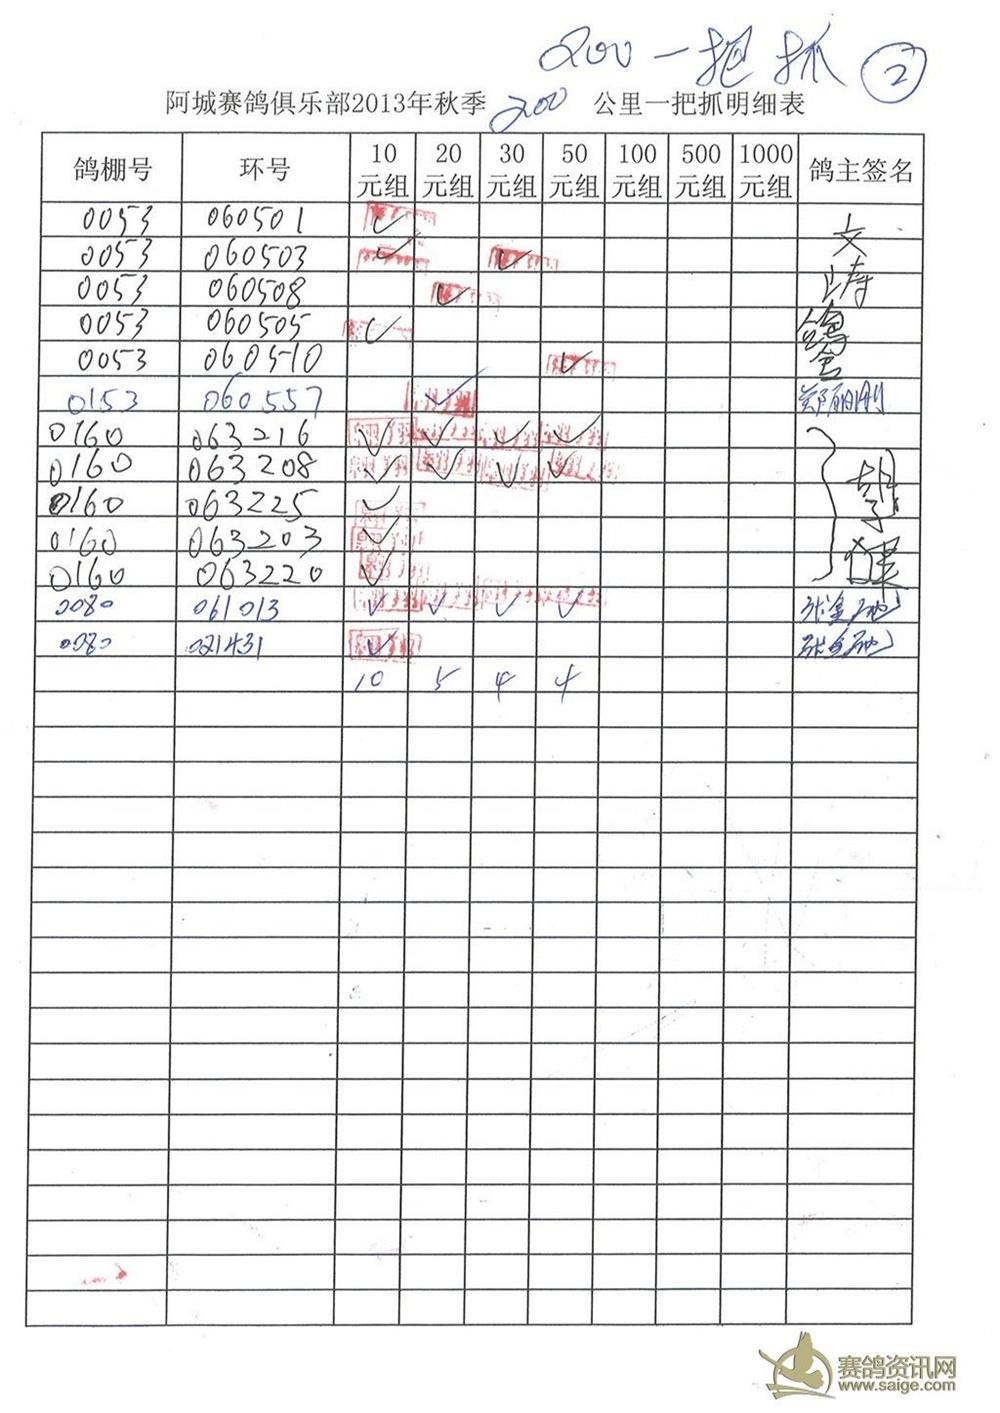 200一把抓 ②
阿城赛鸽俱乐部2013年秋季 200 公里一把抓明细表
鸽棚号 环号 10元组 20元组 30元组 50元组 100元组 500元组 1000元组 鸽主签名
0053 060501 ✓ 文
0053 060503 ✓ ✓
0053 060508 ✓
0053 060505 ✓ 鸽
0053 060510 ✓ 舍
0153 060557 ✓ 郑丽刚
0160 063216 ✓ ✓ ✓ ✓
0160 063208 ✓ ✓ ✓ ✓
0160 063225 ✓
0160 063203 ✓
0160 063220 ✓
0080 061013 ✓ ✓ ✓ ✓ 张金
0080 021431 ✓ 张金
10 5 4 4
赛鸽资讯网
www.saige.com